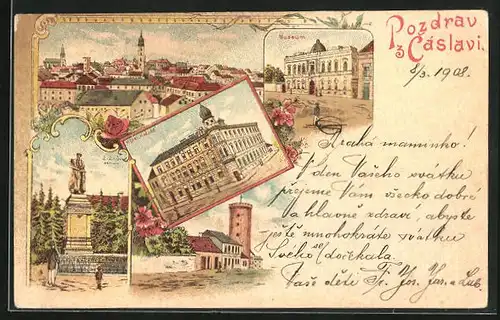 Pozdrav
z Čáslavi.
Museum
5/3. 1908.
Drahá maminko!
V den Vašeho svátku
přejeme Vám všecko dobré
a hlavně zdraví, abyste
ještě mnohokráte svátku
Svého se dočkala.
Vaše děti Fr. Jos. Jar. a Lub.